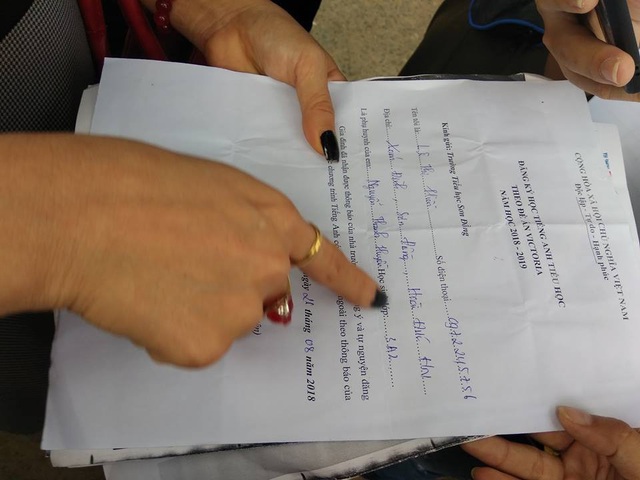 CỘNG HÒA XÃ HỘI CHỦ NGHĨA VIỆT NAM
Độc lập - Tự do - Hạnh phúc
ĐĂNG KÝ HỌC TIẾNG ANH TIỂU HỌC
THEO ĐỀ ÁN VICTORIA
NĂM HỌC 2018 - 2019
Kính gửi: Trường Tiểu học Sơn Đồng
Tên tôi là: Lê Thị Số điện thoại
Địa chỉ: Sơn Đồng Hoài Đức
Là phụ huynh của em: Nguyễn Thanh Học
Gia đình đã nhận được thông báo của nhà ý và tự nguyện đăng
chương trình Tiếng Anh ngoài theo thông báo của
ngày 21 tháng 08 năm 2018